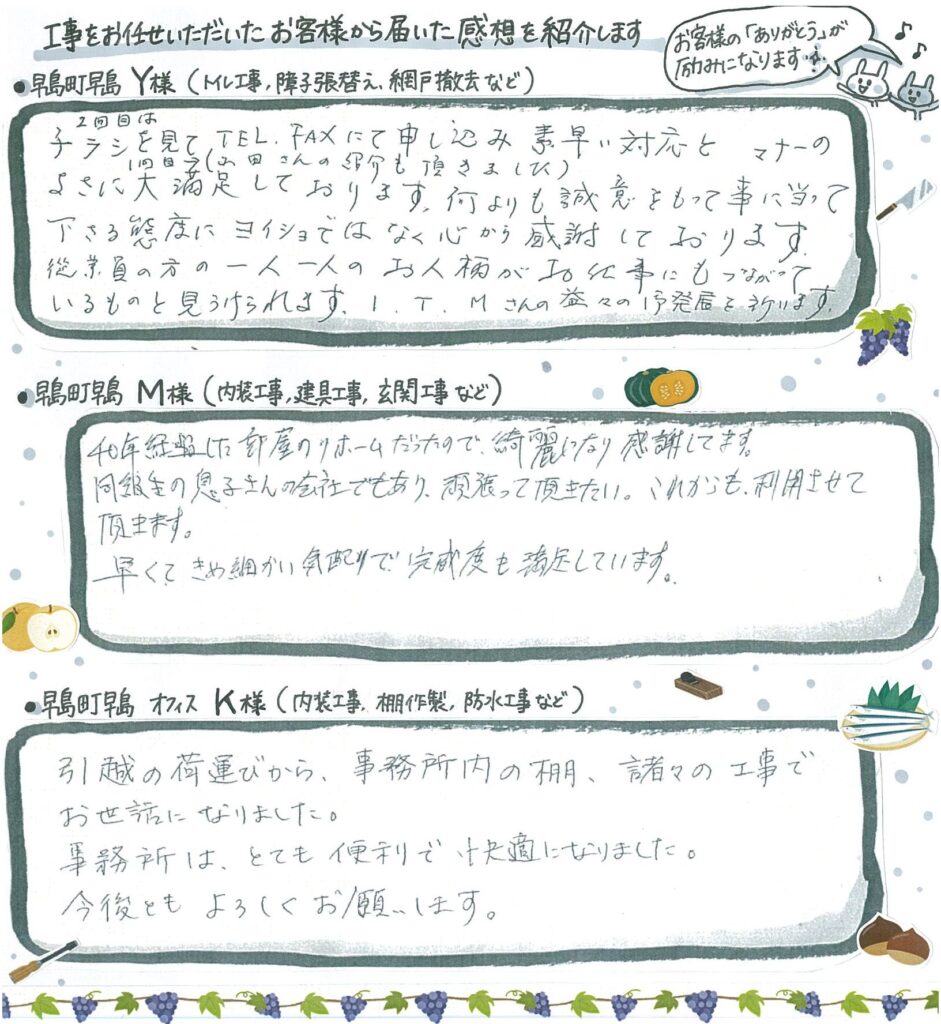 工事をお任せいただいたお客様から届いた感想を紹介します
お客様の「ありがとう」が
励みになります
●早島町早島 Y様（トイレ工事，障子張替え，網戸撤去など）
2回目は
チラシを見てTEL.FAXにて申し込み 素早い対応と マナーの
1回目は(山田さんの紹介も頂きました)
よさに大満足しております。何よりも誠意をもって事に当って
下さる態度にヨイショではなく心から感謝しております。
従業員の方の一人一人のお人柄がお仕事にもつながって
いるものと見うけられます。I.T.Mさんの益々の御発展を祈ります。
●早島町早島 M様（内装工事，建具工事，玄関工事など）
40年経過した部屋のリホームだったので、綺麗になり感謝してます。
同級生の息子さんの会社でもあり、頑張って頂きたい。これからも、利用させて
頂きます。
早くて、きめ細かい気配りで完成度も満足しています。
●早島町早島 オフィス K様（内装工事，棚作製，防水工事など）
引越の荷運びから、事務所内の棚、諸々の工事で
お世話になりました。
事務所は、とても便利で快適になりました。
今後ともよろしくお願いします。